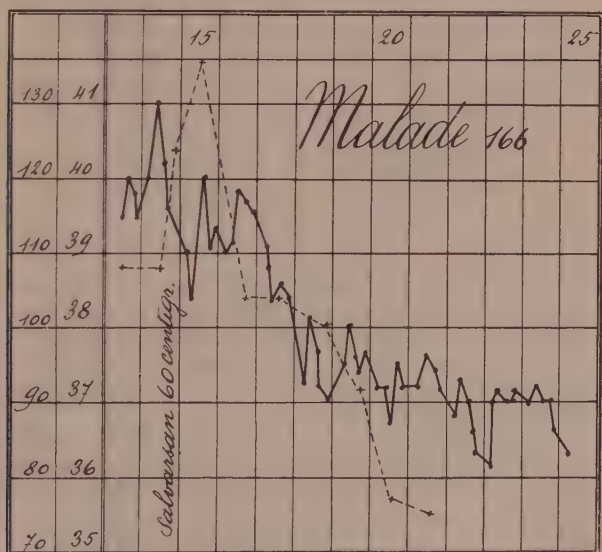 15 20 25
130 41
Malade 166
120 40
110 39
100 38
90 37
80 36
70 35
Salvarsan 60 centigr.